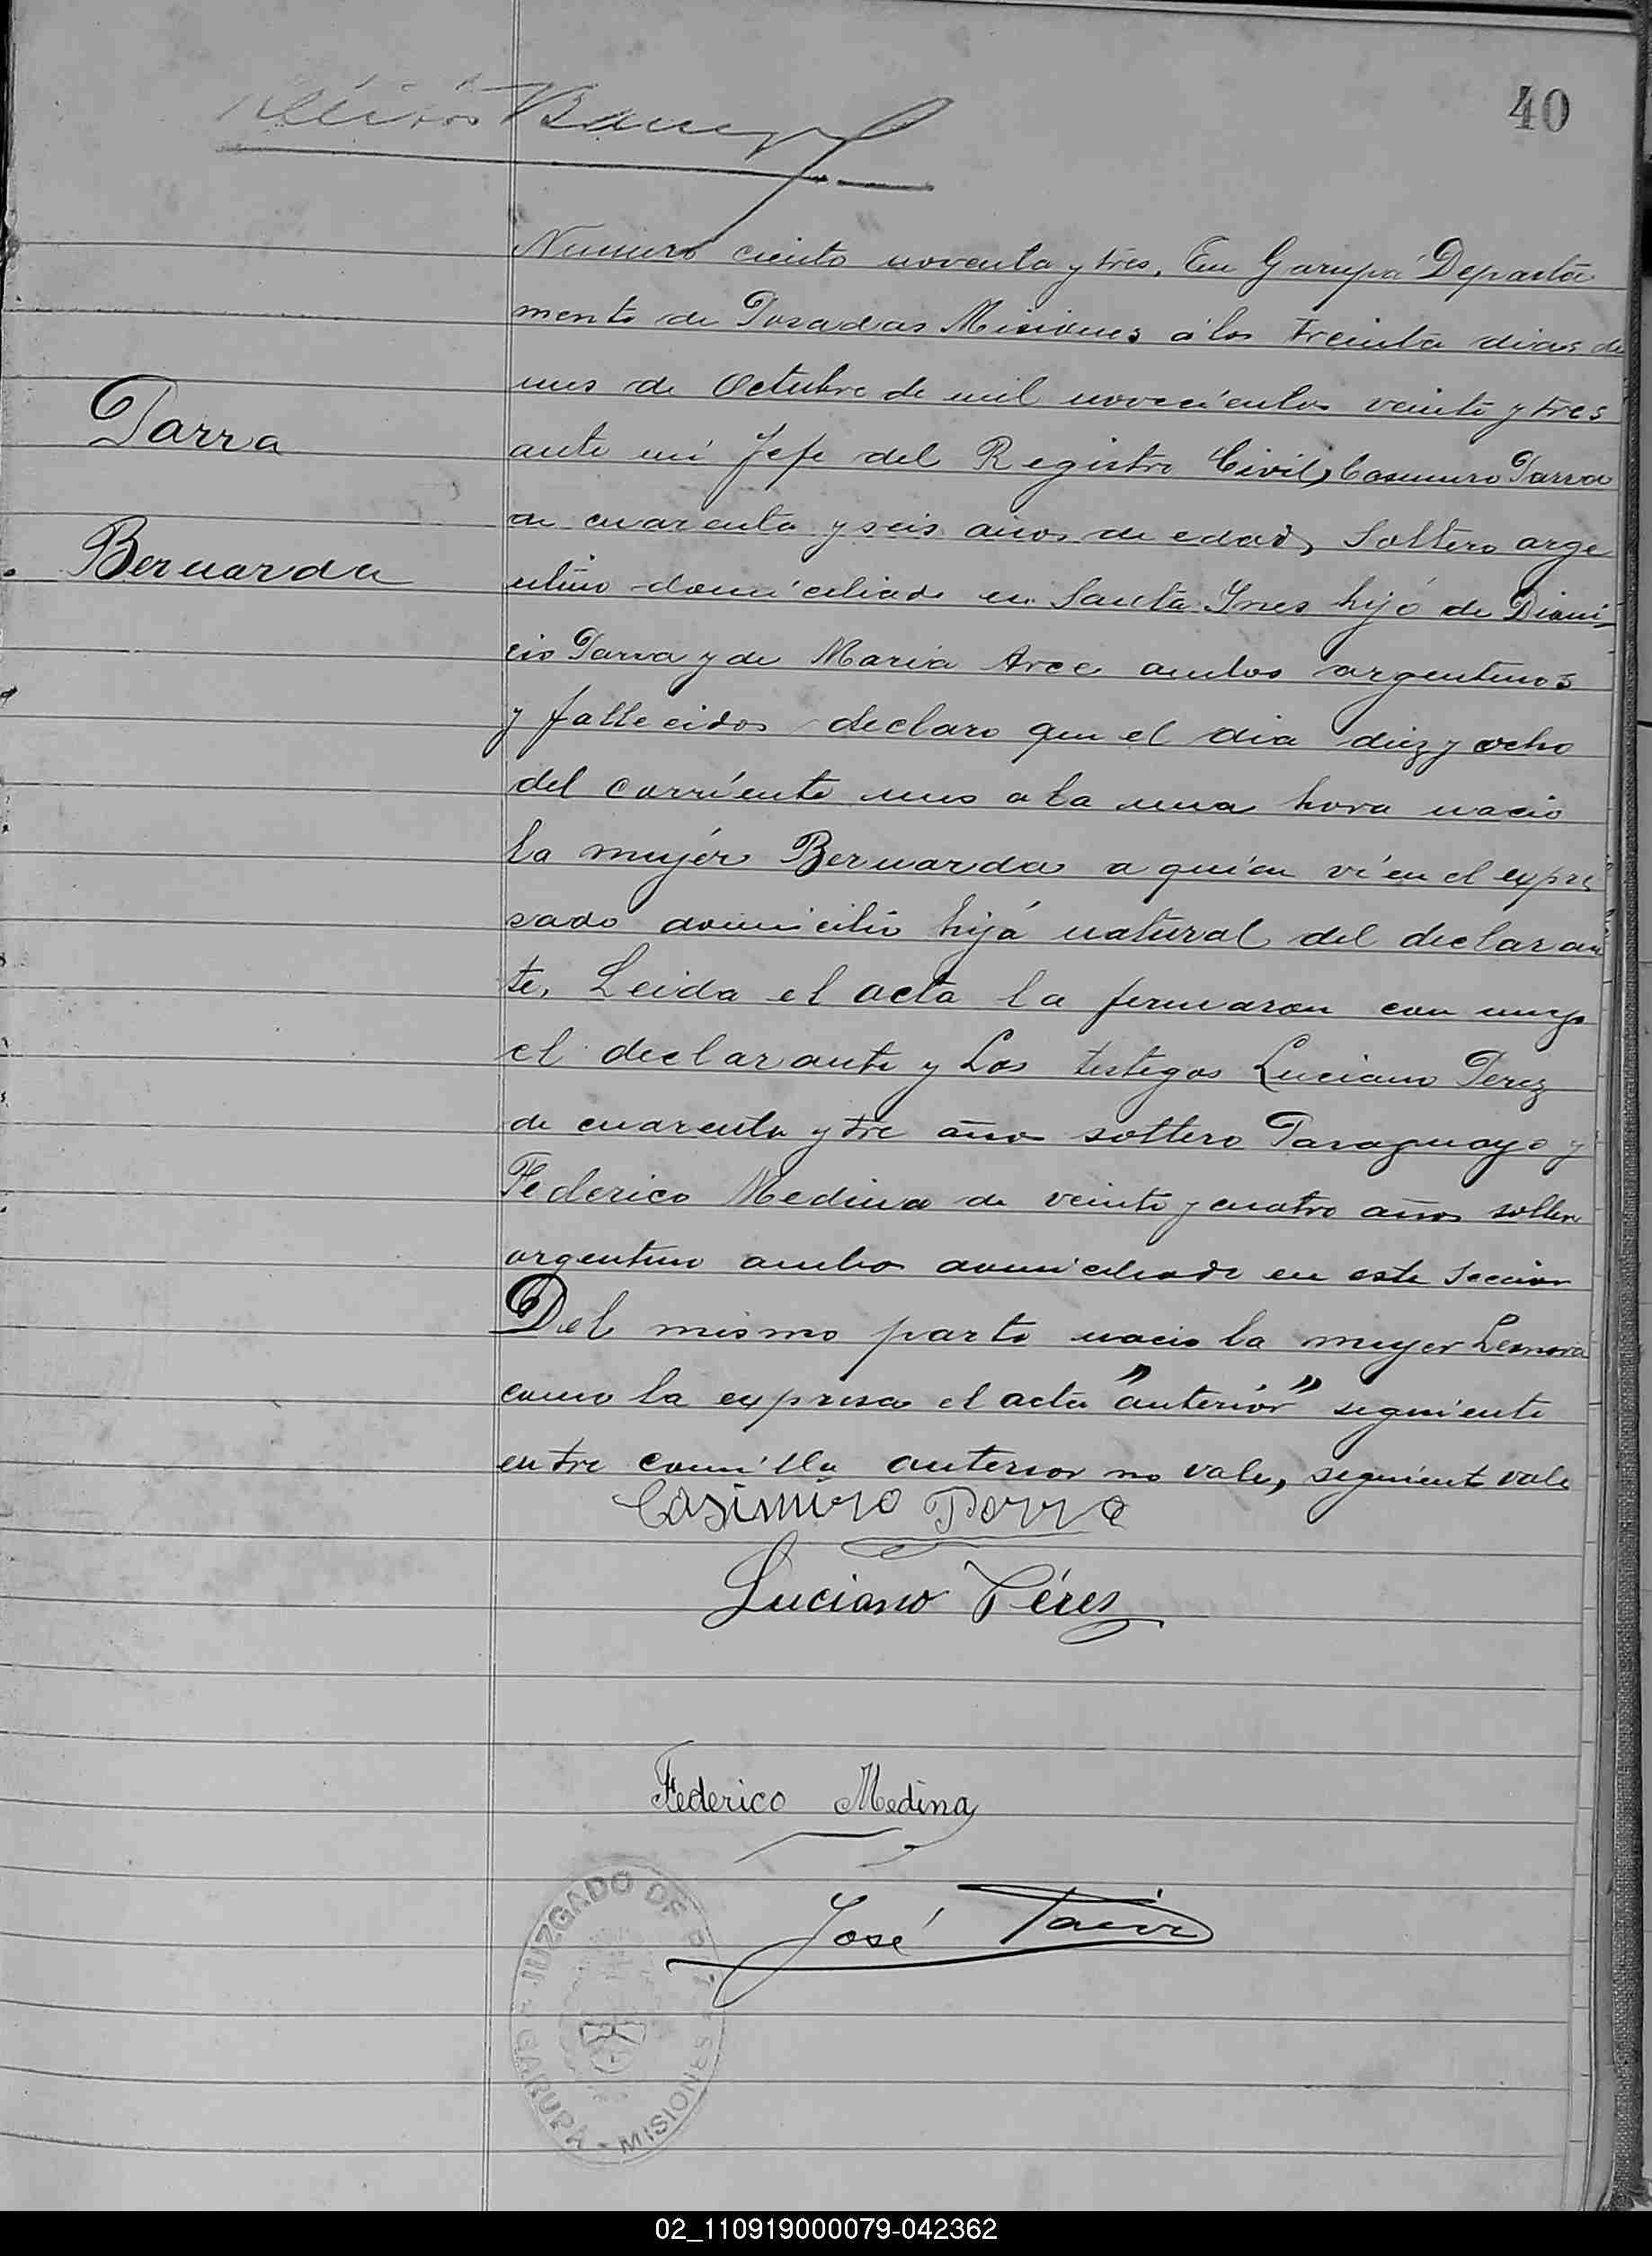 40
Numero ciento noventa y tres. En Garupá Departa
mento de Posadas Misiones á los treinta dias de
mes de Octubre de mil novecientos veinte y tres
Parra
ante mí Jefe del Registro Civil, Casimiro Parra
de cuarenta y seis años de edad, Soltero arge
Bernarda
ntino domiciliado en Santa Ines hijo de Dioni-
cio Parra y de Maria Arce ambos argentinos
y fallecidos declaro que el dia diez y ocho
del corriente mes a la una hora nacio
la mujér Bernarda a quien ví en el expre
sado domicilio hija natural del declaran
te, Leida el acta la firmaron con migo
el declarante y Los testigos Luciano Perez
de cuarenta y tre años soltero Paraguayo y
Federico Medina de veinte y cuatro años soltero
argentino ambos domiciliado en este Seccion
Del mismo parto nacio la mujer Leonora
como la expresa el acta "anteriór" siguiente
entre comilla anterior no vale, siguiente vale
Casimiro Parra
Luciano Pérez
Federico Medina
José
JUZGADO DE PAZ
GARUPA - MISIONES
02_110919000079-042362